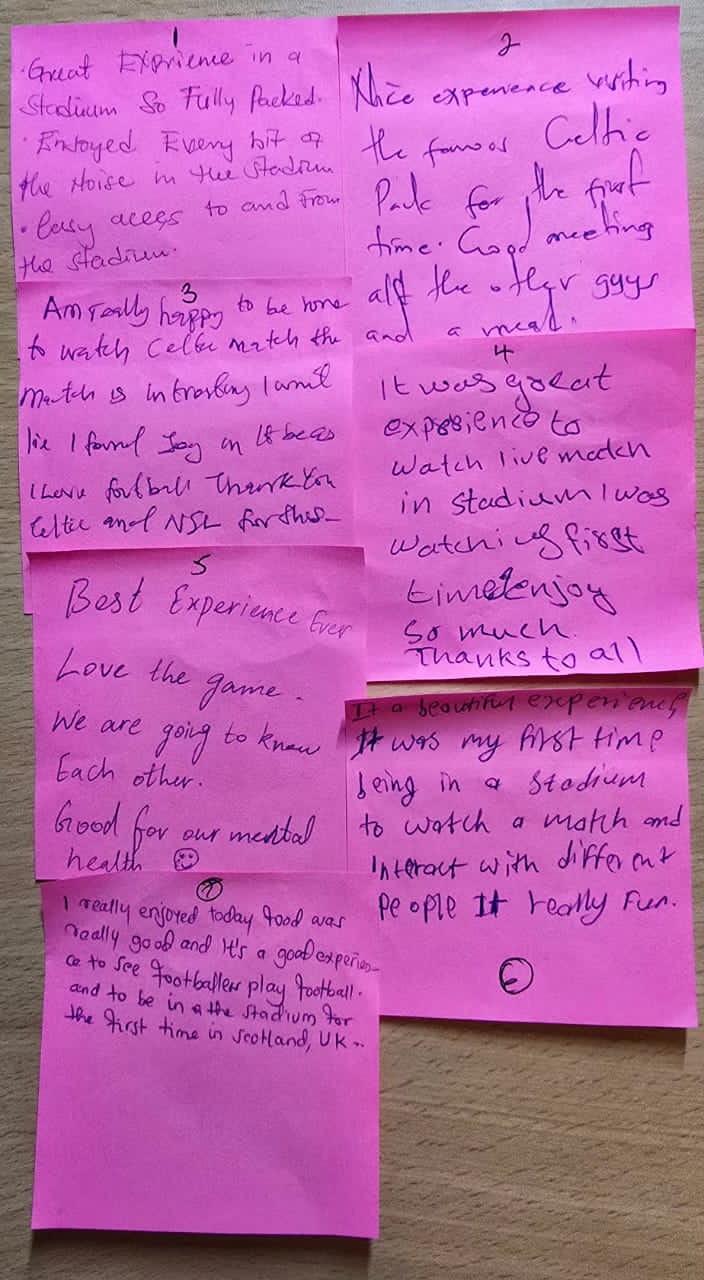 1
· Great Exprience in a
Stadium So Fully Packed.
· Enjoyed Every bit of
the Noise in the Stadium
· Easy acess to and From
the Stadium.
2
Nice experience visiting
the famous Celtic
Park for the first
time. Good meeting
all the other guys
and a meal.
3
Am really happy to be
to watch Celtic match the
match is I
I found Joy in It
I Love football Thank You
Celtic and NSL for this
4
It was great
experience to
watch live match
in stadium I was
watching first
time & enjoy
so much.
Thanks to all
5
Best Experience Ever
Love the game.
We are going to know
Each other.
Good for our mental
health
It a beautiful experience
It was my first time
being in a stadium
to watch a match and
Interact with different
people It really Fun.
6
7
I really enjoyed today food was
really good and It's a good experien-
ce to see footballers play football.
and to be in the stadium for
the first time in Scotland, UK..